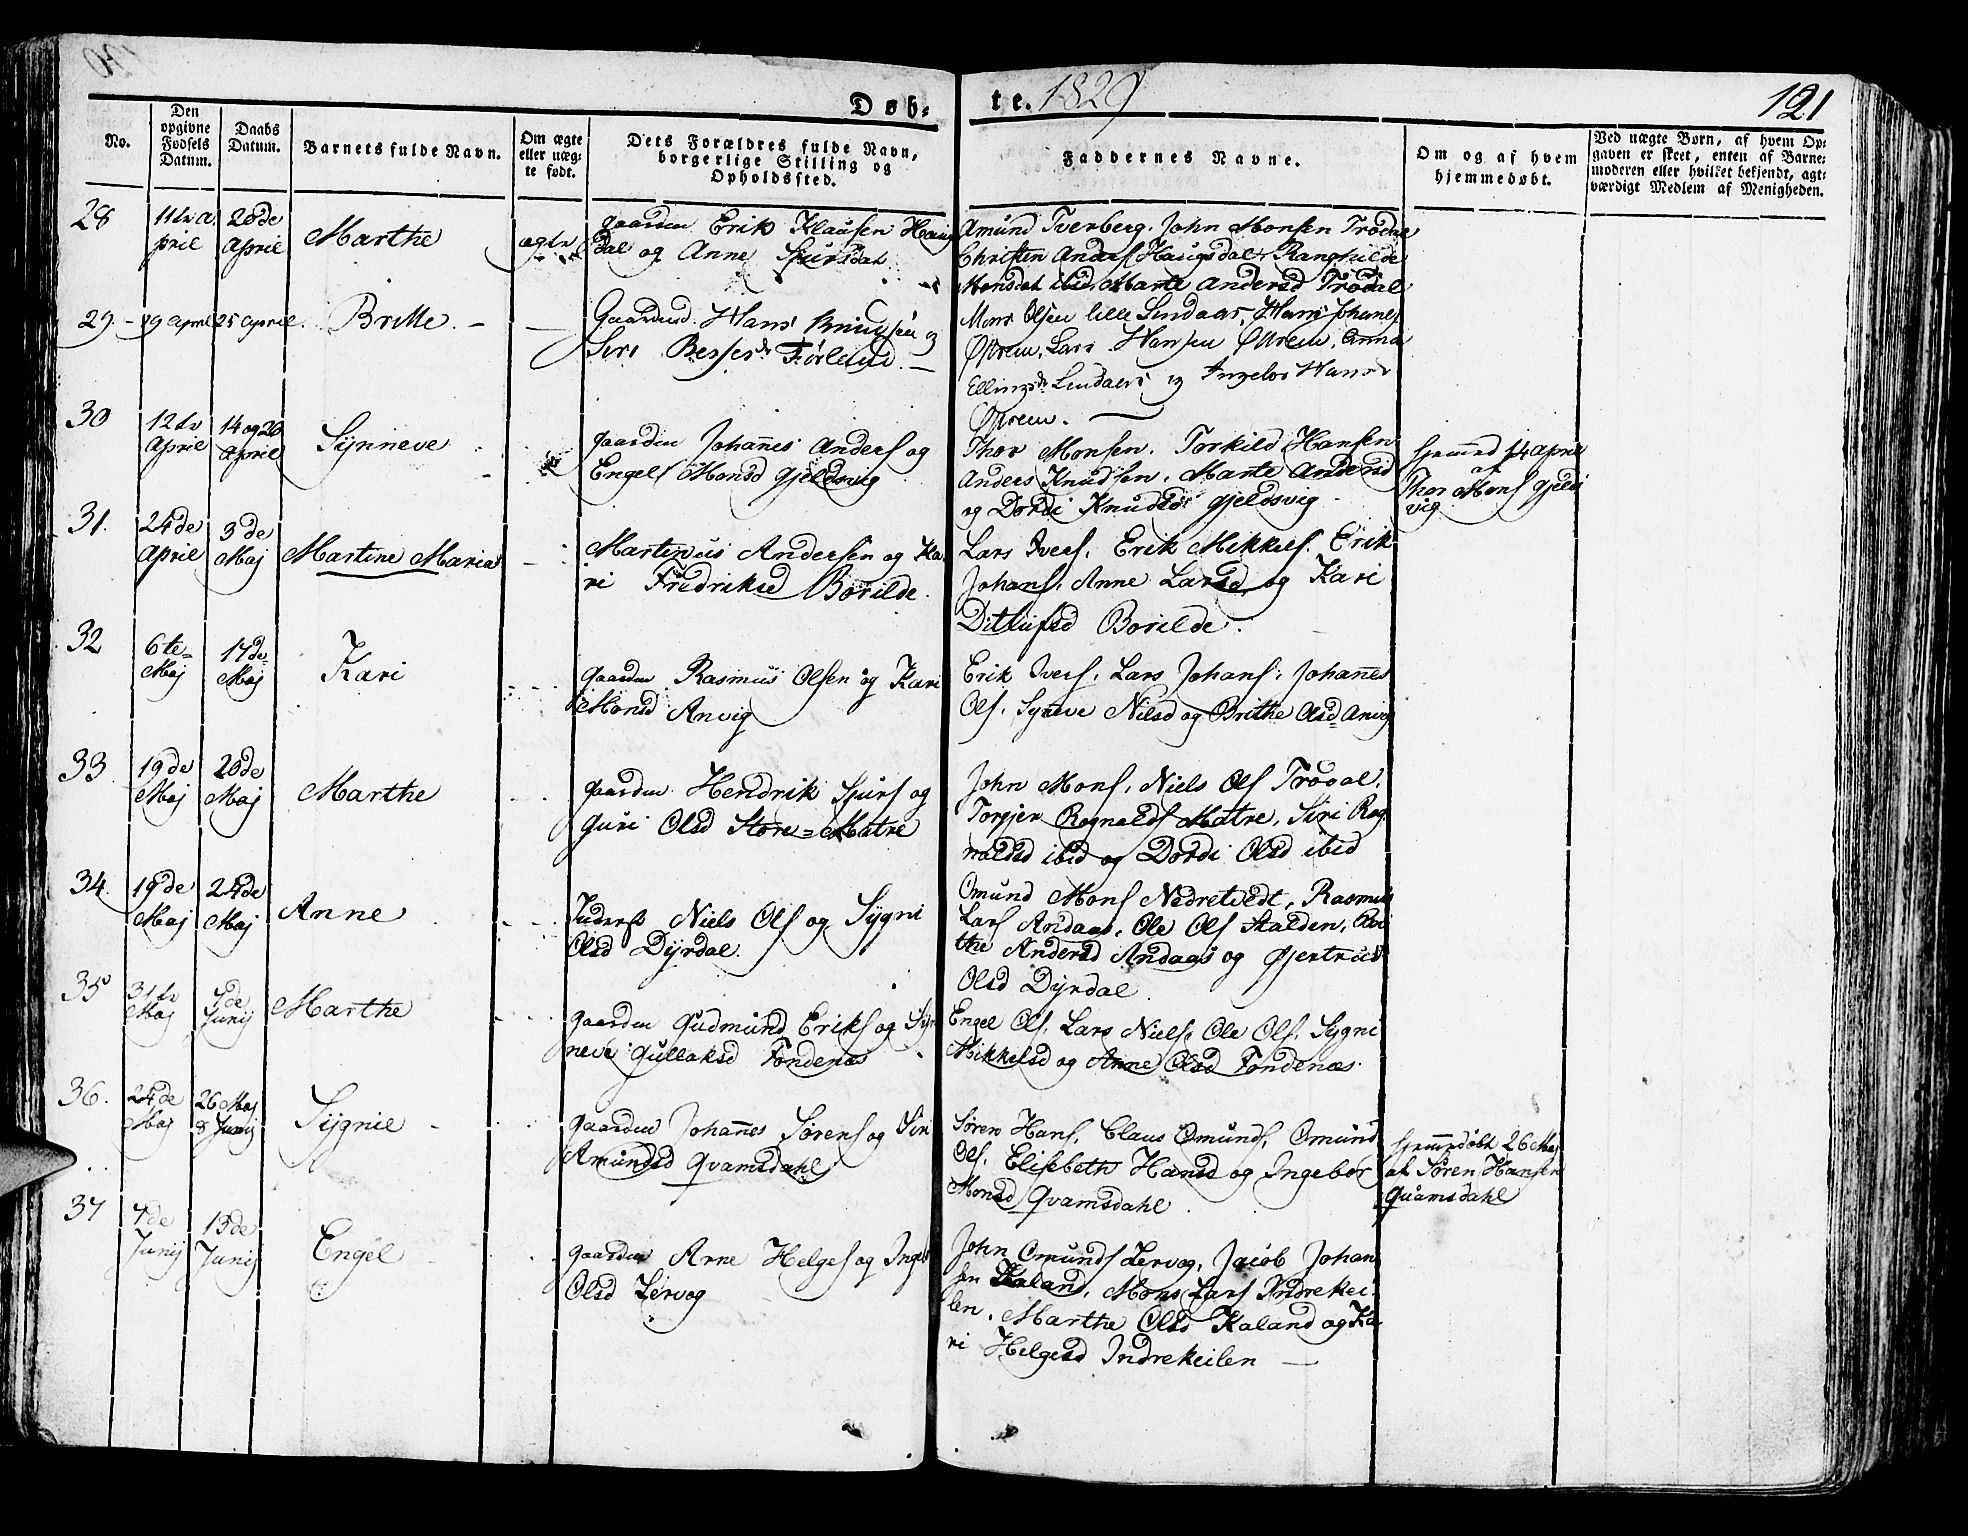 Døb-
te. 1829
121
No.
Den opgivne Fødsels Datum.
Daabs Datum.
Barnets fulde Navn.
Om ægte eller uægte født.
Dets Forældres fulde Navn, borgerlige Stilling og Opholdssted.
Faddernes Navne.
Om og af hvem hjemmedøbt.
Ved uægte Børn, af hvem Opgaven er skeet, enten af Barnemoderen eller hvilket bekjendt, agtværdigt Medlem af Menigheden.
28
11te April
20de April
Marthe
ægte
Gaardm Erik Klausen Haug
dal og Anne Sjursdat
Amund Tverberg. John Monsen Trødal
Christen Anders Haugsdal, Ranghilde
Monsdat ibid, Marte Andersd Trødal
29
19 April
25 April
Britte
Gaardmd. Hans Knudsen og
Siri Bessesd Førland.
Mons Olsen lille Lindaas, Hans Johans
Østrem, Lars Hansen Østrem, Anna
Ellingsd Lindaas og Ingebor Hansd
Østrem.
30
12te April
14 og 20 April
Synneve
gaardm Johannes Anders og
Engel Monsd Gjeldsvig
Thor Monsen. Torkild Hansen
Anders Knudsen. Marte Andersd
og Dordi Knudsd Gjeldsvig
hjemmd 14 April
af
Thor Mons Gjelds
vig
31.
24de April
3de Maj
Martine Maria
Martinus Andersen og Ka
ri Fredriksd Borilde.
Lars Ivers. Erik Mikkels. Erik
Johans. Anne Larsd og Kari
Ditlufsd Borilde.
32
6te Maj
17de Maj
Kari
gaardm Rasmus Olsen og Kari
Monsd Anvig
Erik Ivers. Lars Johans, Johannes
Ols. Syneve Nilsd og Brithe Olsd Anvig
33
19de Maj
20de Maj
Marthe
gaardm Hendrik Sjurs og
Guri Olsd Store=Matre
John Mons, Niels Ols Trodal.
Torgier Rognalds Matre, Siri Rog
naldsd ibid og Dordi Olsd ibid
34
19de Maj
24de Maj
Anne
Inderst Niels Ols og Sygni
Olsd Dyrdal.
Omund Mons Nedretvedt, Rasmus
Lars Andaas, Ole Ols Stalden, Bri
the Andersd Andaas og Gjertrud
Olsd Dyrdal
35
31te Maj
7de Junij
Marthe
gaardm Gudmund Eriks og Syn
neve Gullaksd Fondenæs
Engel Ols, Lars Niels, Ole Ols. Sygni
Mikkelsd og Anne Olsd Fondenæs.
36.
24de Maj
26 Maj
8 Junij
Sygnie
gaardm Johannes Sørens og Siri
Amundsd Qvamsdahl
Søren Hans, Claus Omunds, Omund
Ols, Elisebeth Hansd og Ingebor
Monsd Qvamsdahl
hjemmedøbt 26 Maj
af Søren Hansen
Quamsdahl
37
7de Junij
13de Junij
Engel
gaardm Arne Helges og Ingeb
Olsd Lervog
John Omunds Lervog, Jacob Johan
sen Kaland, Mons Lars Indrekei
len. Marthe Olsd Kaland og Ka
ri Helgesd Indrekeilen